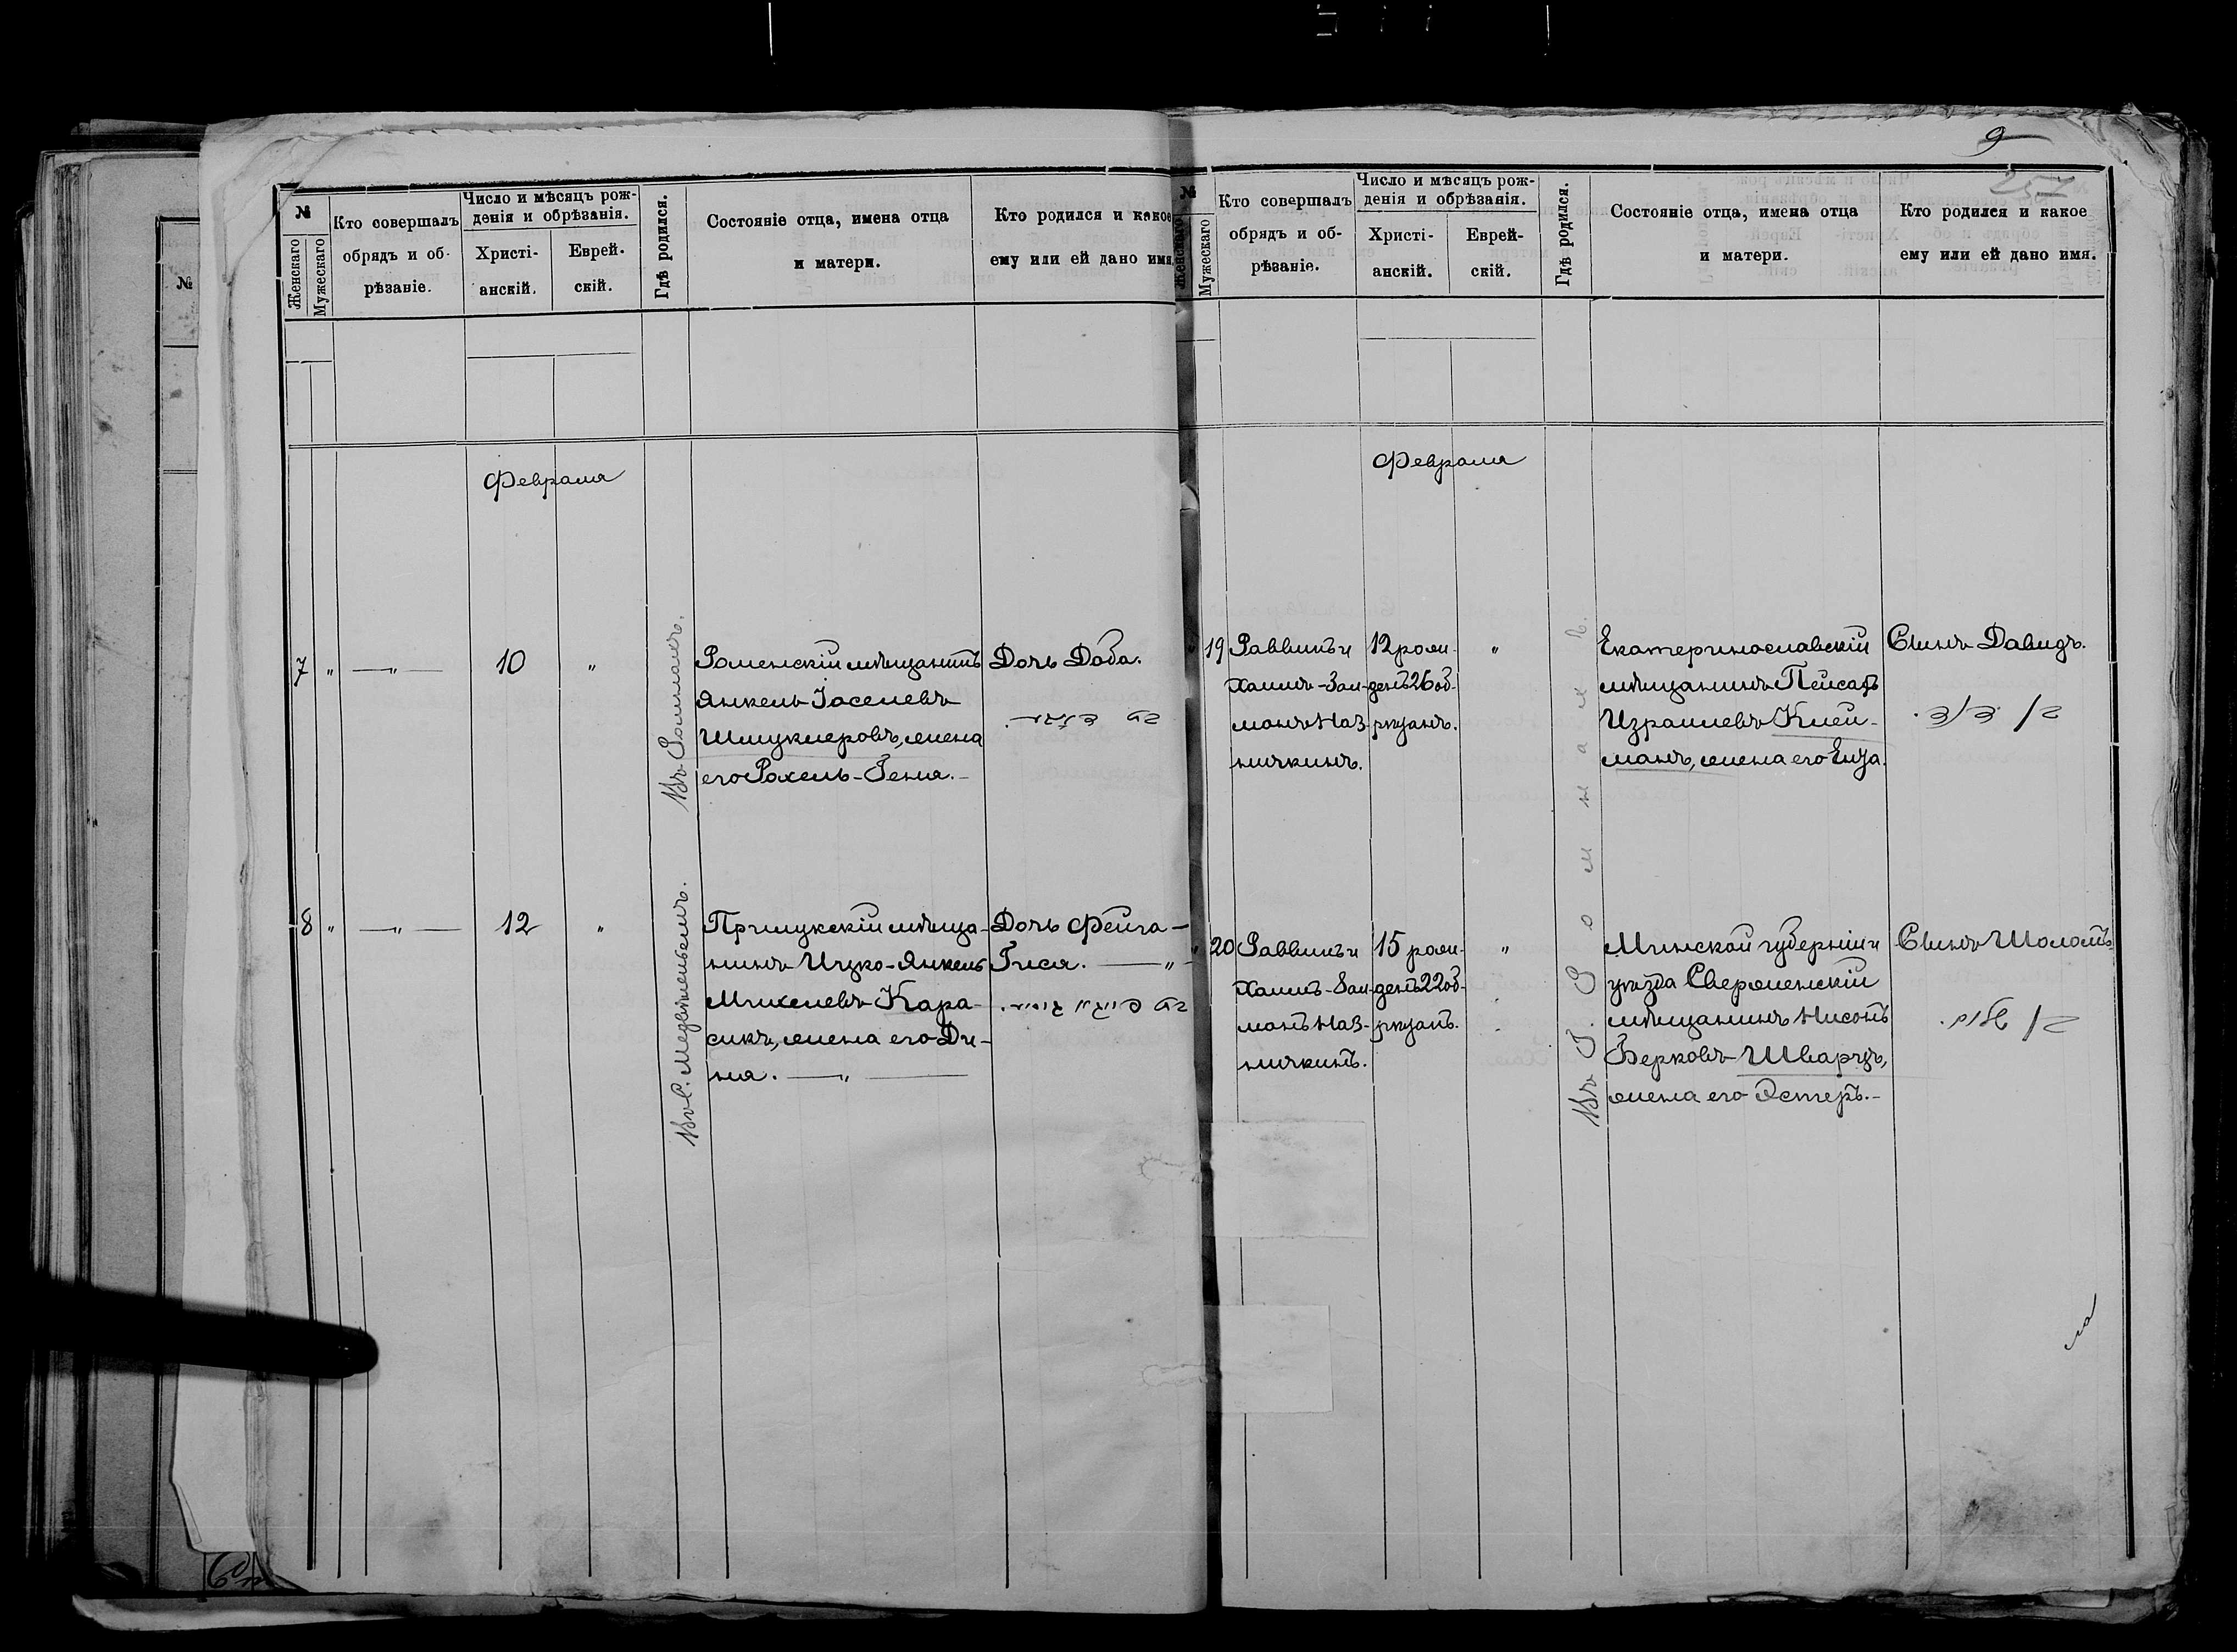 9
257
№
Женскаго
Мужескаго
Кто совершалъ
обрядъ и об-
рѣзаніе.
Число и мѣсяцъ рож-
денія и обрѣзанія.
Христі-
анскій.
Еврей-
скій.
Гдѣ родился.
Состояніе отца, имена отца
и матери.
Кто родился и какое
ему или ей дано имя.
Февраля
7 " —"— 10 "
Въ Ромнахъ.
Роменскій мѣщанинъ
Янкель Іоселевъ
Шмуклеровъ, жена
его Рохель-Геня.-
Дочь Доба.
8 " —"— 12 "
Въ С. Медвѣжьемъ.
Прилукскій мѣща-
нинъ Ицко-Янкель
Михелевъ Кара-
сикъ, жена его Ди-
на. —"—
Дочь Фейга-
Гися. —"—
בת פייגא גיסי.
№
Женскаго
Мужескаго
Кто совершалъ
обрядъ и об-
рѣзаніе.
Число и мѣсяцъ рож-
денія и обрѣзанія.
Христі-
анскій.
Еврей-
скій.
Гдѣ родился.
Состояніе отца, имена отца
и матери.
Кто родился и какое
ему или ей дано имя.
Февраля
" 19
Раввинъ и
Хаимъ-Зал-
манъ Наз-
нички­нъ.
12 рож-
денъ 26 об-
рѣзанъ.
"
Въ Г. Ромнахъ.
Екатеринославскій
мѣщанинъ Пейсахъ
Израилевъ Клей-
манъ, жена его Энза.
Сынъ Давидъ.
" 20
Раввинъ и
Хаимъ-Зал-
манъ Наз-
ничкинъ.
15 рож-
денъ 22 об-
рѣзанъ.
"
Минской губерніи и
уѣзда Сверженскій
мѣщанинъ Нисонъ
Берковъ Шварцъ,
жена его Эстеръ.-
Сынъ Шоломъ
בן שלום.